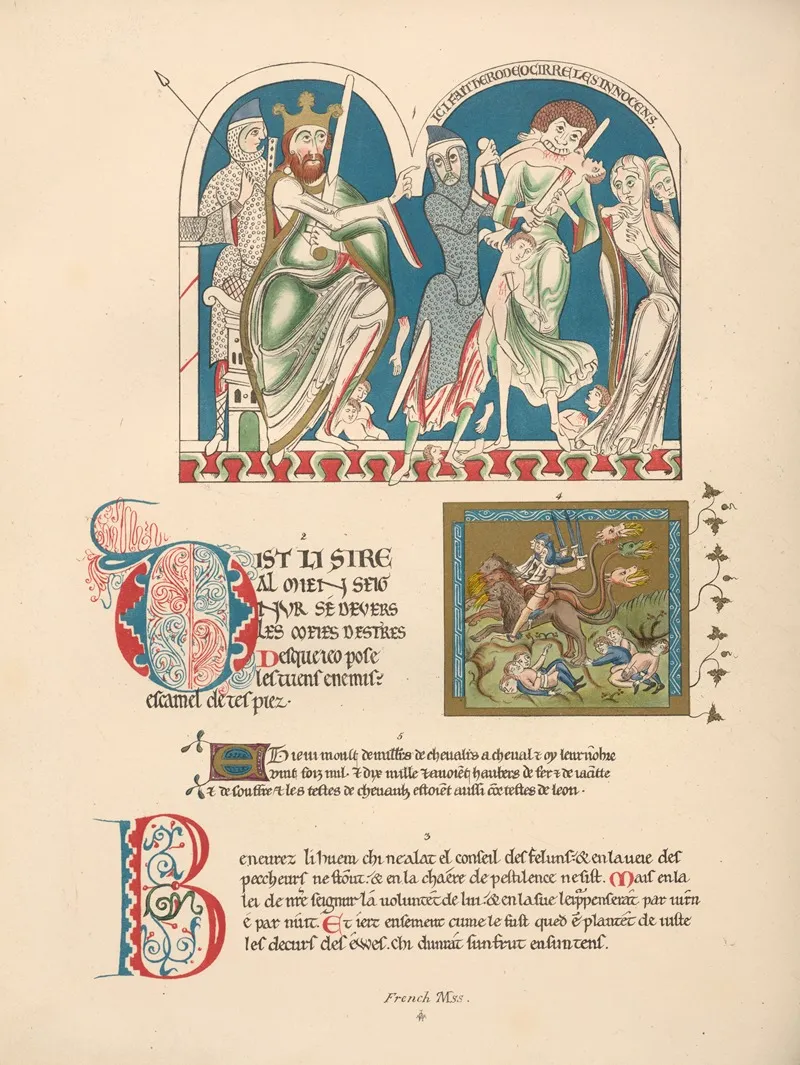 ICI FAIT HERODE OCIRRE LES INNOCENS.
1
2
DIST LI SIRE
AL MIEN SEIG
NVR SE DEVERS
LES MEIES DESTRES
Desque ico pose
les tuens enemis:
escamel de tes piez.
4
5
E Th ieui moult de milliers de chevaliers a cheval & oy leur nōbre
vint foiz mil. & dix mille & avoiēt haubers de fer & de iacīte
& de souffre & les testes de chevaulx estoiēt aussi cōe testes de leon.
3
Beneurez li huem chi ne alat el conseil des feluns: & en la veie des
peccheurs ne stout: & en la chaere de pestilence ne sist. Mais en la
lei de nr̄e seignur la voluntet de lui: & en la sue lei p̄penserat par iurn
e par nuit. Et iert ensement cume le fust qued ē plantet de iuste
les decurs des ewes. chi dunrat sun frut en sun tens.
French Mss.